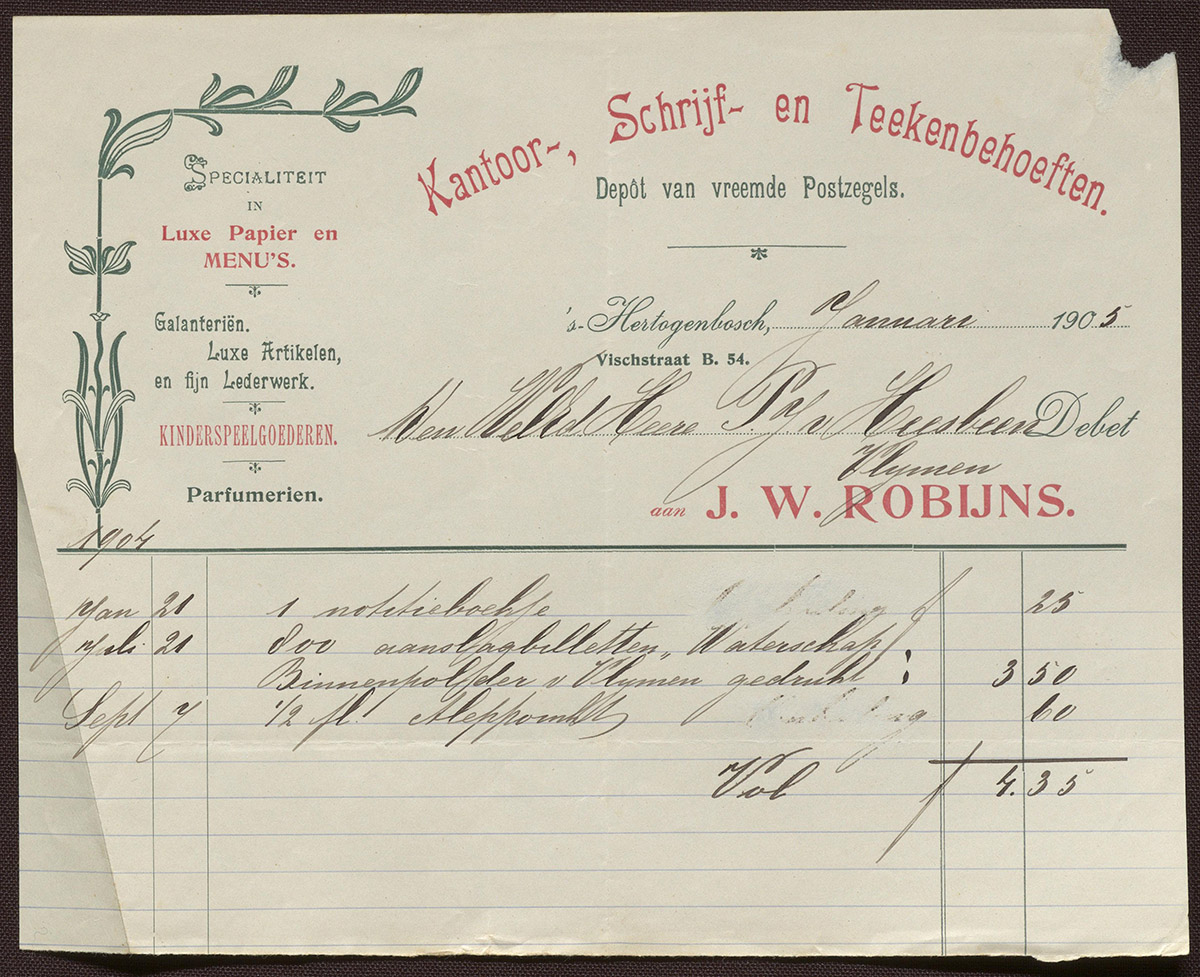 Kantoor-, Schrijf- en Teekenbehoeften.
Depôt van vreemde Postzegels.
SPECIALITEIT
IN
Luxe Papier en
MENU'S.
Galanteriën.
Luxe Artikelen,
en fijn Lederwerk.
KINDERSPEELGOEDEREN.
Parfumerien.
's-Hertogenbosch, Januari 1905
Vischstraat B. 54.
Den WelEd Heere P. v Heesbeen Debet
Vlymen
aan J. W. ROBIJNS.
1904
Jan 21 1 notitieboekje f 25
Juli 21 800 aanslagbilletten „Waterschap
Binnenpolder v Vlymen gedrukt 3 50
Sept 7 1/2 fl. Aleppoinkt 60
f 4.35